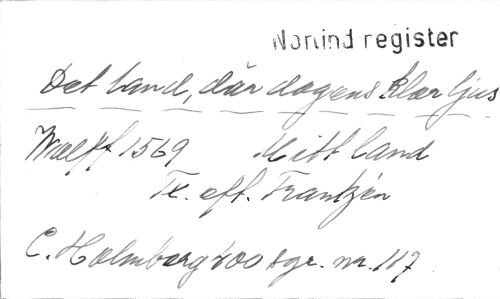 Norlind register
Det land, där dagens klar ljus
Wolff 1569 Mitt land
Tx. eft. Frantzén
C. Holmberg 400 sgr. nr. 117